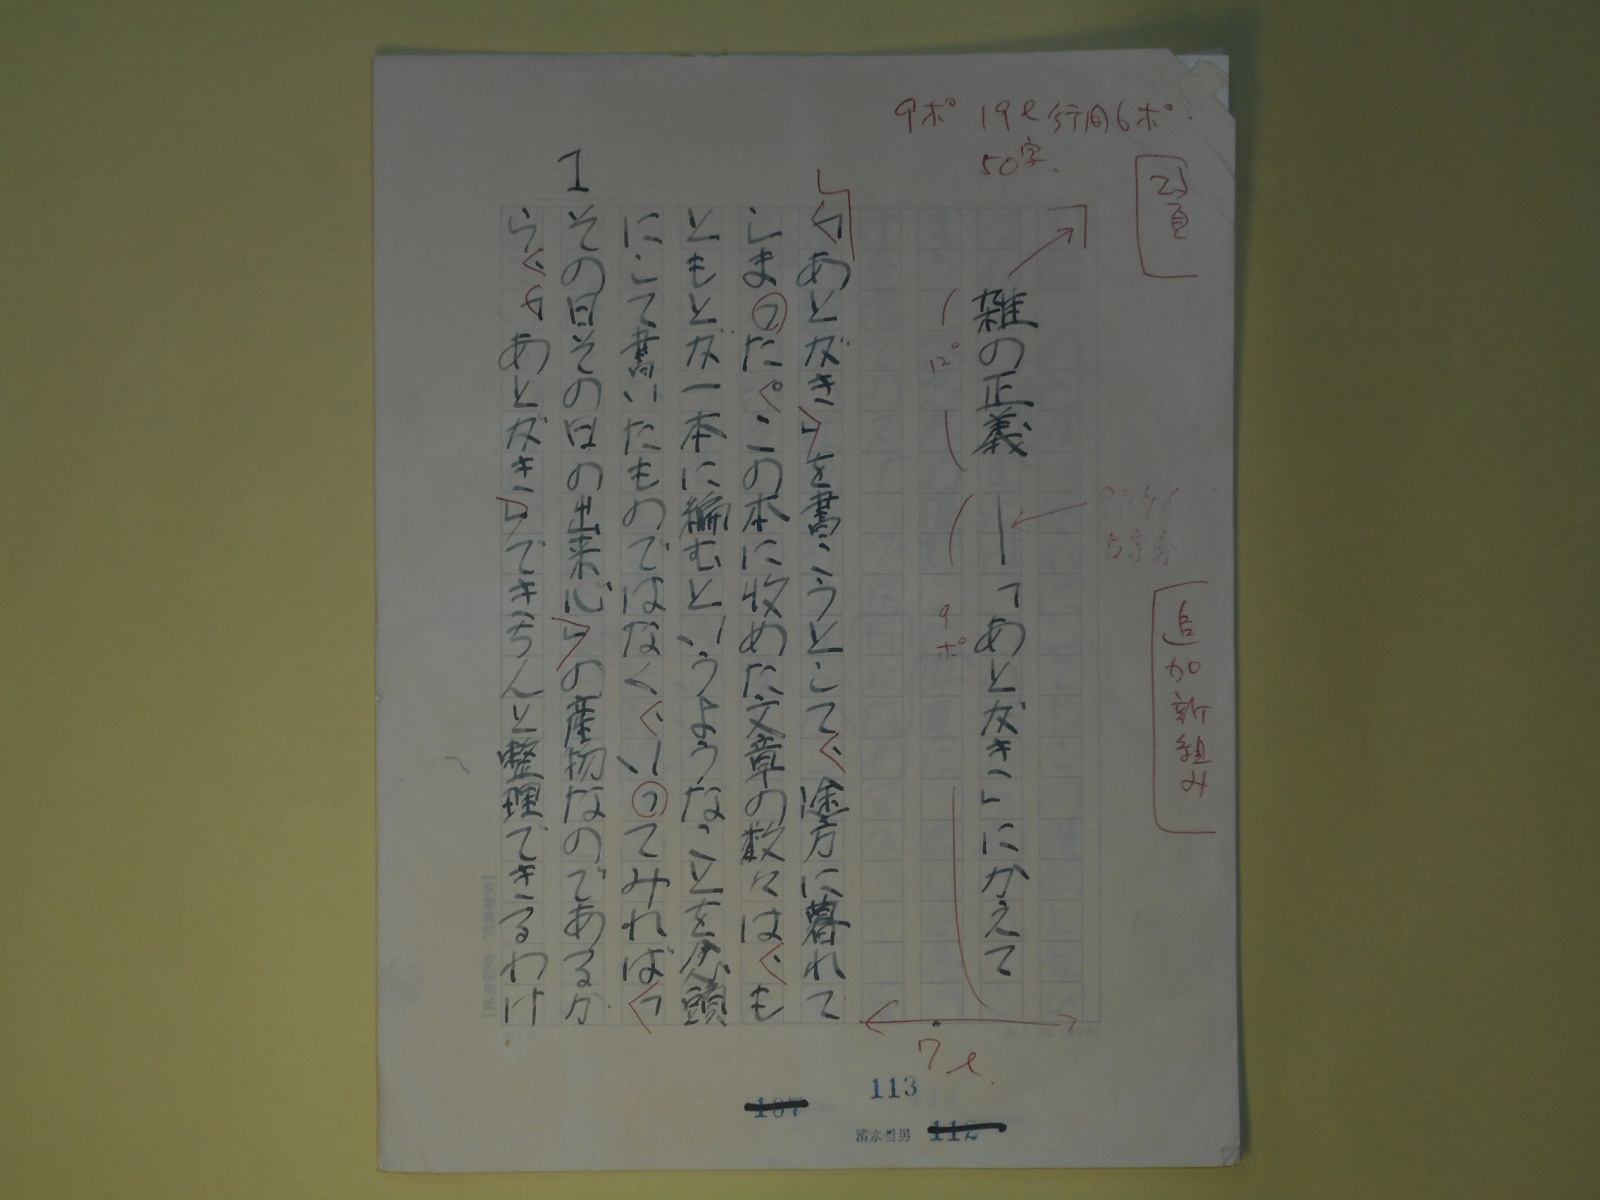 9ポ 19l 行間6ポ.
50字.
改頁
追加新組み
雑の正義 ―「あとがき」にかえて
12ポ
9ポ
「あとがき」を書こうとして、途方に暮れて
しまった。この本に收めた文章の数々は、も
ともとが一本に編むというようなことを念頭
にして書いたものではなく、いってみれば「
その日その日の出来心」の産物なのであるか
ら、「あとがき」できちんと整理できるわけ
1
7l.
113
107
112
清水哲男